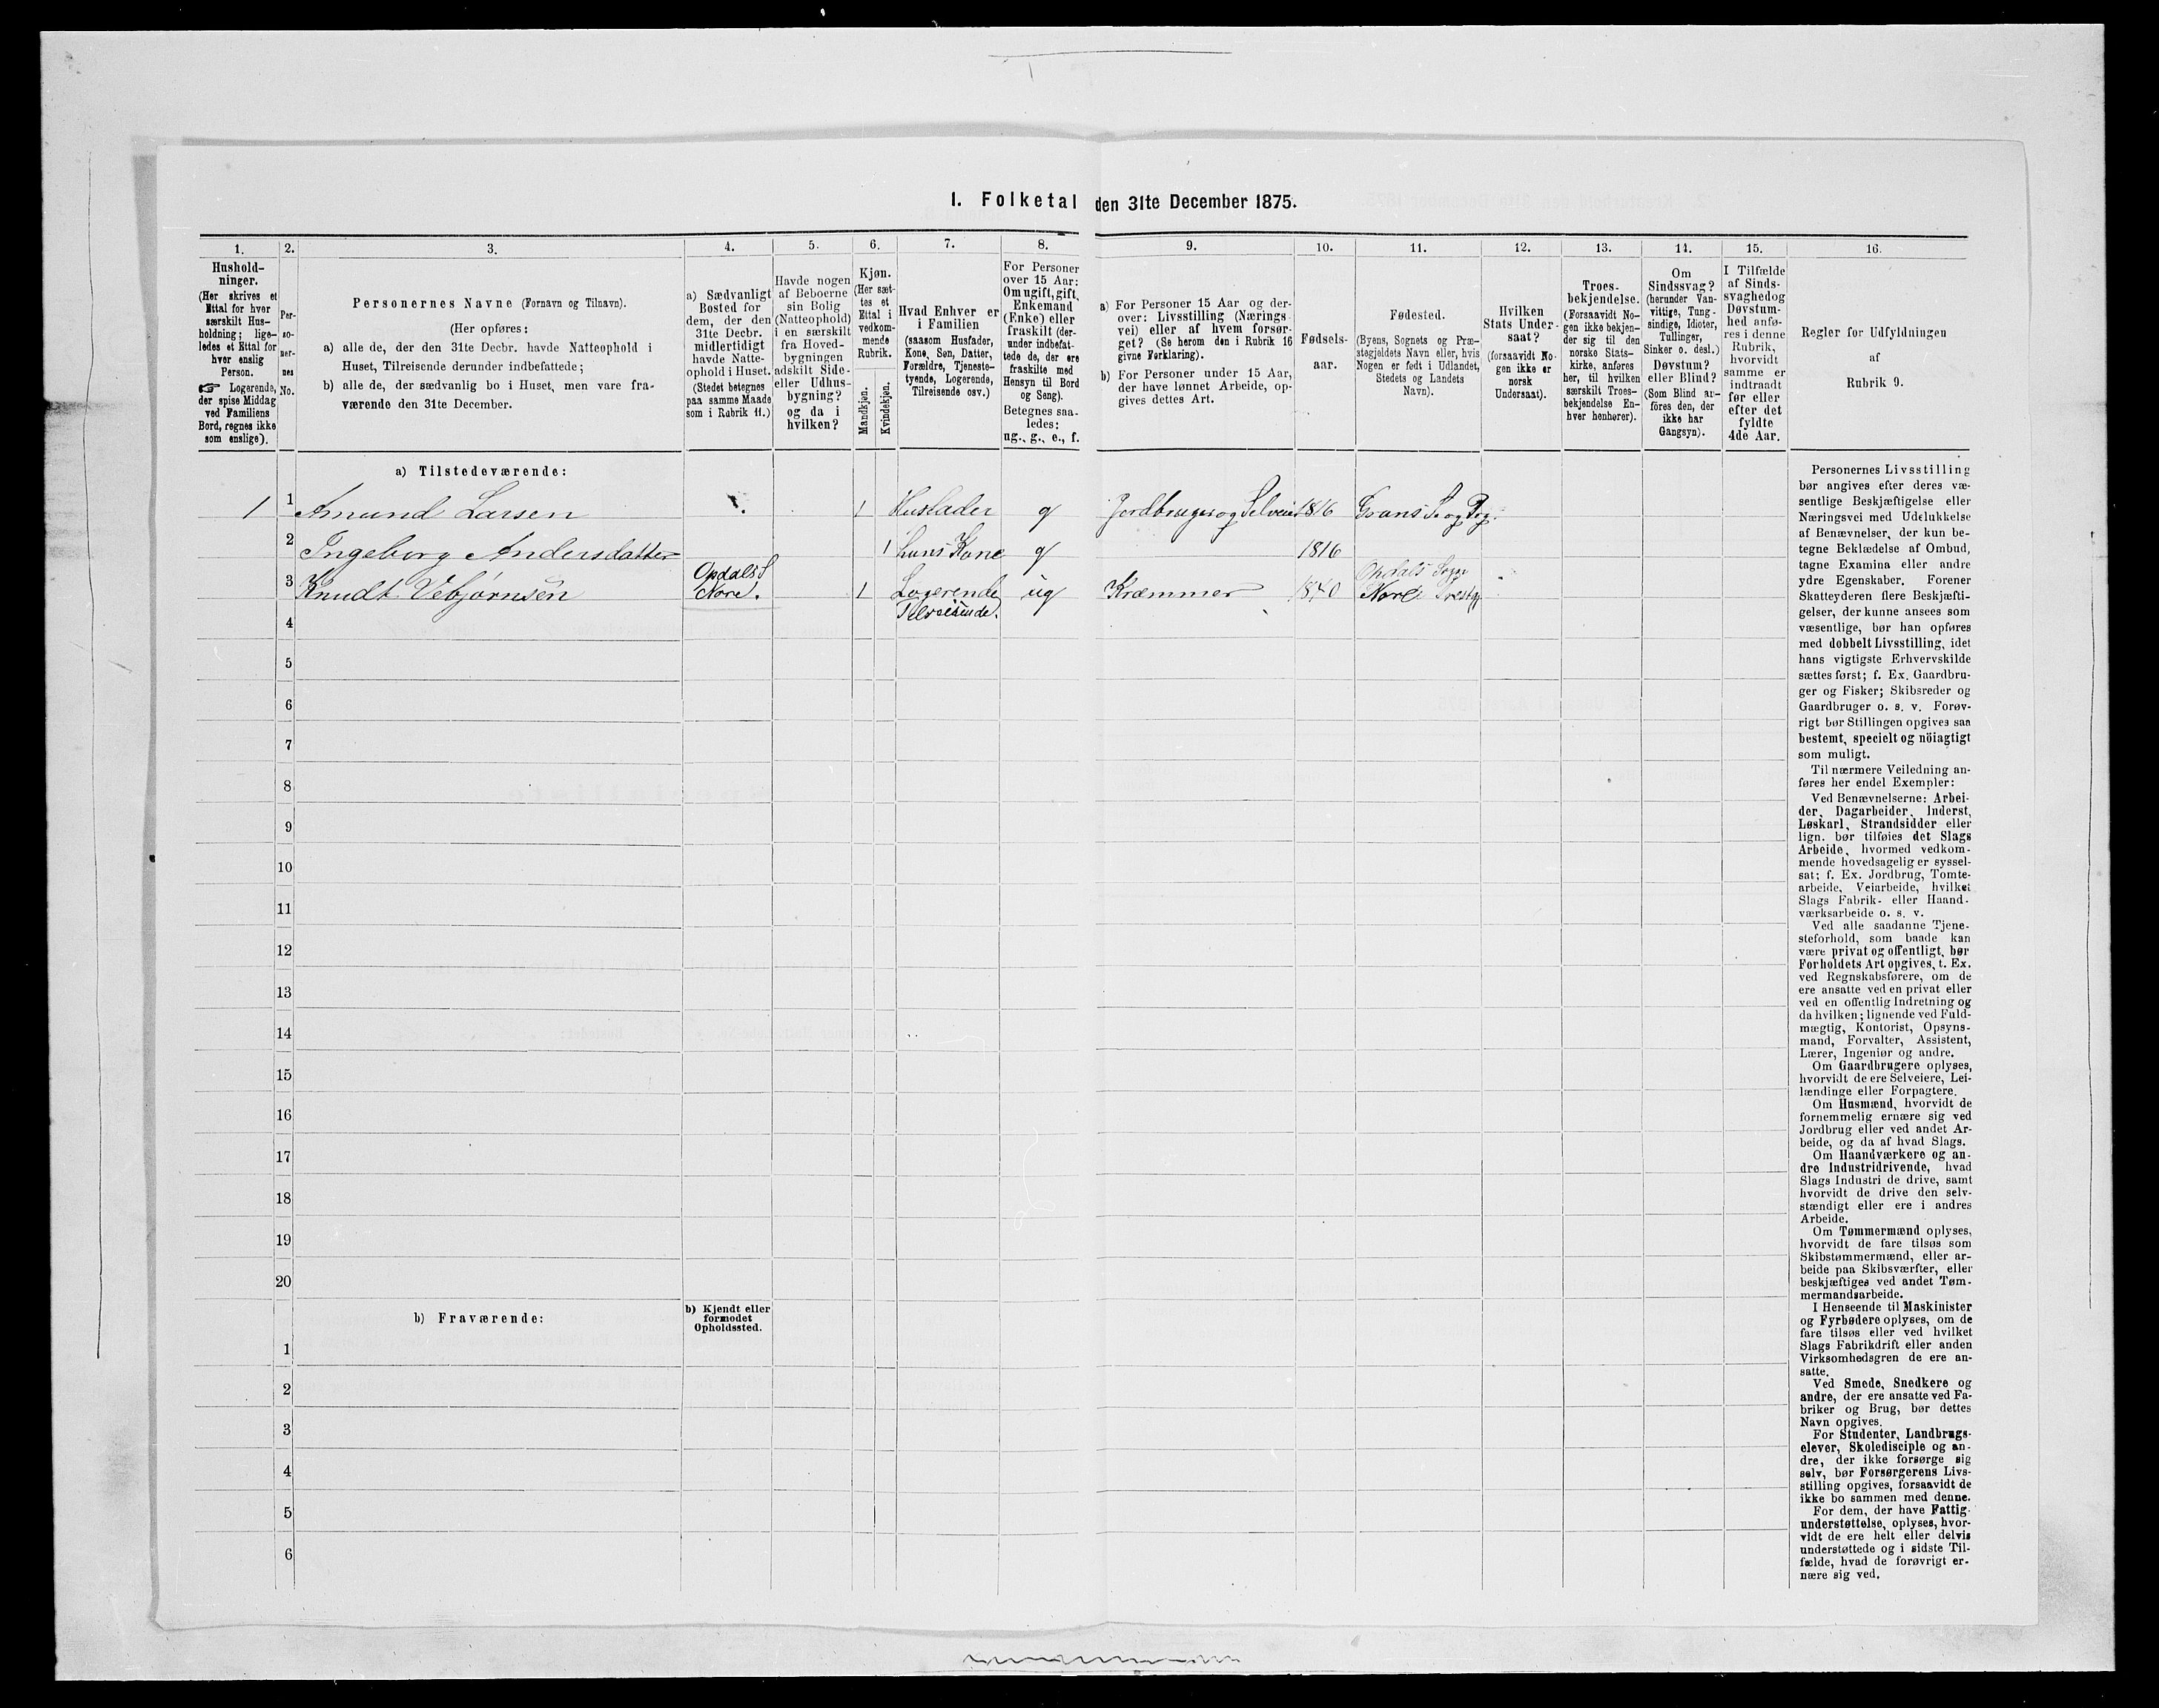 I. Folketal den 31te December 1875.
1. 2. 3. 4. 5. 6. 7. 8. 9. 10. 11. 12. 13. 14. 15. 16.
Hushold-
ninger.
(Her skrives et
Ettal for hver
særskilt Hus-
holdning; lige-
ledes et Ettal for
hver enslig
Person.
☞ Logerende,
der spise Middag
ved Familiens
Bord, regnes ikke
som enslige).
Per-
so-
ner-
nes
No.
Personernes Navne (Fornavn og Tilnavn).
(Her opføres:
a) alle de, der den 31te Decbr. havde Natteophold i
Huset, Tilreisende derunder indbefattede;
b) alle de, der sædvanlig bo i Huset, men vare fra-
værende den 31te December.
a) Sædvanligt
Bosted for
dem, der den
31te Decbr.
midlertidigt
havde Natte-
ophold i Huset.
(Stedet betegnes
paa samme Maade
som i Rubrik 11.)
Havde nogen
af Beboerne
sin Bolig
(Natteophold)
i en særskilt
fra Hoved-
bygningen
adskilt Side-
eller Udhus-
bygning?
og da i
hvilken?
Kjøn.
(Her sæt-
tes et
Ettal i
vedkom-
mende
Rubrik.
Mandkjøn.
Kvindekjøn.
Hvad Enhver er
i Familien
(saasom Husfader,
Kone, Søn, Datter,
Forældre, Tjeneste-
tyende, Logerende,
Tilreisende osv.)
For Personer
over 15 Aar:
Om ugift, gift,
Enkemand
(Enke) eller
fraskilt (der-
under indbefat-
tede de, der ere
fraskilte med
Hensyn til Bord
og Seng).
Betegnes saa-
ledes:
ug., g., e., f.
a) For Personer 15 Aar og der-
over: Livsstilling (Nærings
vei) eller af hvem forsør-
get? (Se herom den i Rubrik 16
givne Førklaring).
b) For Personer under 15 Aar,
der have lønnet Arbeide, op-
gives dettes Art.
Fødsels-
aar.
Fødested.
(Byens, Sognets og Præ-
stegjeldets Navn eller, hvis
Nogen er født i Udlandet,
Stedets og Landets
Navn).
Hvilken
Stats Under-
saat?
(forsaavidt No-
gen ikke er
norsk
Undersaat).
Troes-
bekjendelse.
(Forsaavidt No-
gen ikke bekjen-
der sig til den
norske Stats-
kirke, anføres
her, til hvilken
særskilt Troes-
bekjendelse En-
hver henhører).
Om
Sindssvag?
(herunder Van-
vittige, Tung-
sindige, Idioter,
Tullinger,
Sinker o. desl.)
Døvstum?
eller Blind?
(Som Blind an-
føres den, der
ikke har
Gangsyn).
I Tilfælde
af Sinds-
svaghed og
Døvstum-
hed anfø-
res i denne
Rubrik,
hvorvidt
samme er
indtraadt
før eller
efter det
fyldte
4de Aar.
Regler for Udfyldningen
af
Rubrik 9.
a) Tilstedeværende:
1 1 Amund Larsen 1 Husfader g Jordbruger og Selveier 1816 Grans S. og Pg.
2 Ingeborg Andersdatter 1 hans Kone g 1816
3 Knudt Vebjørnsen Opdals S Nore. 1 Logerende ug Kræmmer 1840 Opdals Sogn Nore Prestgj
Tilreisende.
4
5
6
7
8
9
10
11
12
13
14
15
16
17
18
19
20
b) Fraværende:
b) Kjendt eller
formodet
Opholdssted.
1
2
3
4
5
6
Personernes Livsstilling
bør angives efter deres væ-
sentlige Beskjæftigelse eller
Næringsvei med Udelukkelse
af Benævnelser, der kun be-
tegne Beklædelse af Ombud,
tagne Examina eller andre
ydre Egenskaber. Forener
Skatteyderen flere Beskjæfti-
gelser, der kunne ansees som
væsentlige, bør han opføres
med dobbelt Livsstilling, idet
hans vigtigste Erhvervskilde
sættes først; f. Ex. Gaardbru-
ger og Fisker; Skibsreder og
Gaardbruger o. s. v. Forøv-
rigt bør Stillingen opgives saa
bestemt, specielt og nöiagtigt
som muligt.
Til nærmere Veiledning an-
føres her endel Exempler:
Ved Benævnelserne: Arbei-
der, Dagarbeider, Inderst,
Løskarl, Strandsidder eller
lign. bør tilføies det Slags
Arbeide, hvormed vedkom-
mende hovedsagelig er syssel-
sat; f. Ex. Jordbrug, Tomte-
arbeide, Veiarbeide, hvilket
Slags Fabrik- eller Haand-
værksarbeide o. s. v.
Ved alle saadanne Tjene-
steforhold, som baade kan
være privat og offentligt, bør
Forholdets Art opgives, t. Ex.
ved Regnskabsførere, om de
ere ansatte ved en privat eller
ved en offentlig Indretning og
da hvilken; lignende ved Fuld-
mægtig, Kontorist, Opsyns-
mand, Forvalter, Assistent,
Lærer, Ingeniør og andre.
Om Gaardbrugere oplyses,
hvorvidt de ere Selveiere, Lei-
lændinge eller Forpagtere.
Om Husmænd, hvorvidt de
fornemmelig ernære sig ved
Jordbrug eller ved andet Ar-
beide, og da af hvad Slags.
Om Haandværkere og an-
dre Industridrivende, hvad
Slags Industri de drive, samt
hvorvidt de drive den selv-
stændigt eller ere i andres
Arbeide.
Om Tømmermænd oplyses,
hvorvidt de fare tilsøs som
Skibstømmermænd, eller ar-
beide paa Skibsværfter, eller
beskjæftiges ved andet Tøm-
mermandsarbeide.
I Henseende til Maskinister
og Fyrbødere oplyses, om de
fare tilsøs eller ved hvilket
Slags Fabrikdrift eller anden
Virksomhedsgren de ere an-
satte.
Ved Smede, Snedkere og
andre, der ere ansatte ved Fa-
briker og Brug, bør dettes
Navn opgives.
For Studenter, Landbrugs-
elever, Skoledisciple og an-
dre, der ikke forsørge sig
selv, bør Forsørgerens Livs-
stilling opgives, forsaavidt de
ikke bo sammen med denne.
For dem, der have Fattig-
understøttelse, oplyses, hvor-
vidt de ere helt eller delvis
understøttede og i sidste Til-
fælde, hvad de forøvrigt er-
nære sig ved.